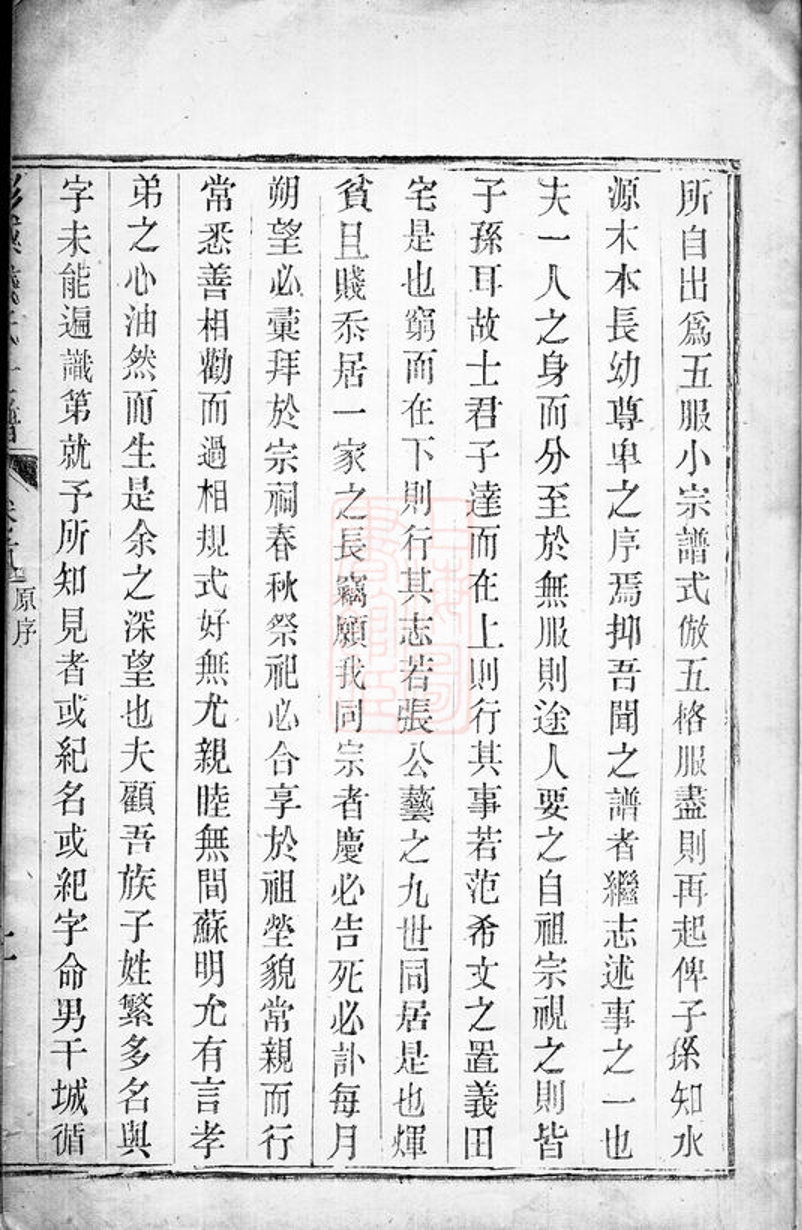 所自出爲五服小宗譜式倣五格服盡則再起俾子孫知水
源木本長幼尊卑之序焉抑吾聞之譜者繼志述事之一也
夫一人之身而分至於無服則途人要之自祖宗視之則皆
子孫耳故士君子達而在上則行其事若范希文之置義田
宅是也窮而在下則行其志若張公藝之九世同居是也煇
貧且賤忝居一家之長竊願我同宗者慶必告死必訃每月
朔望必彙拜於宗祠春秋祭祀必合享於祖塋貌常親而行
常悉善相勸而過相規式好無尤親睦無間蘇明允有言孝
弟之心油然而生是余之深望也夫顧吾族子姓繁多名與
字未能遍識第就予所知見者或紀名或紀字命男干城循
原序